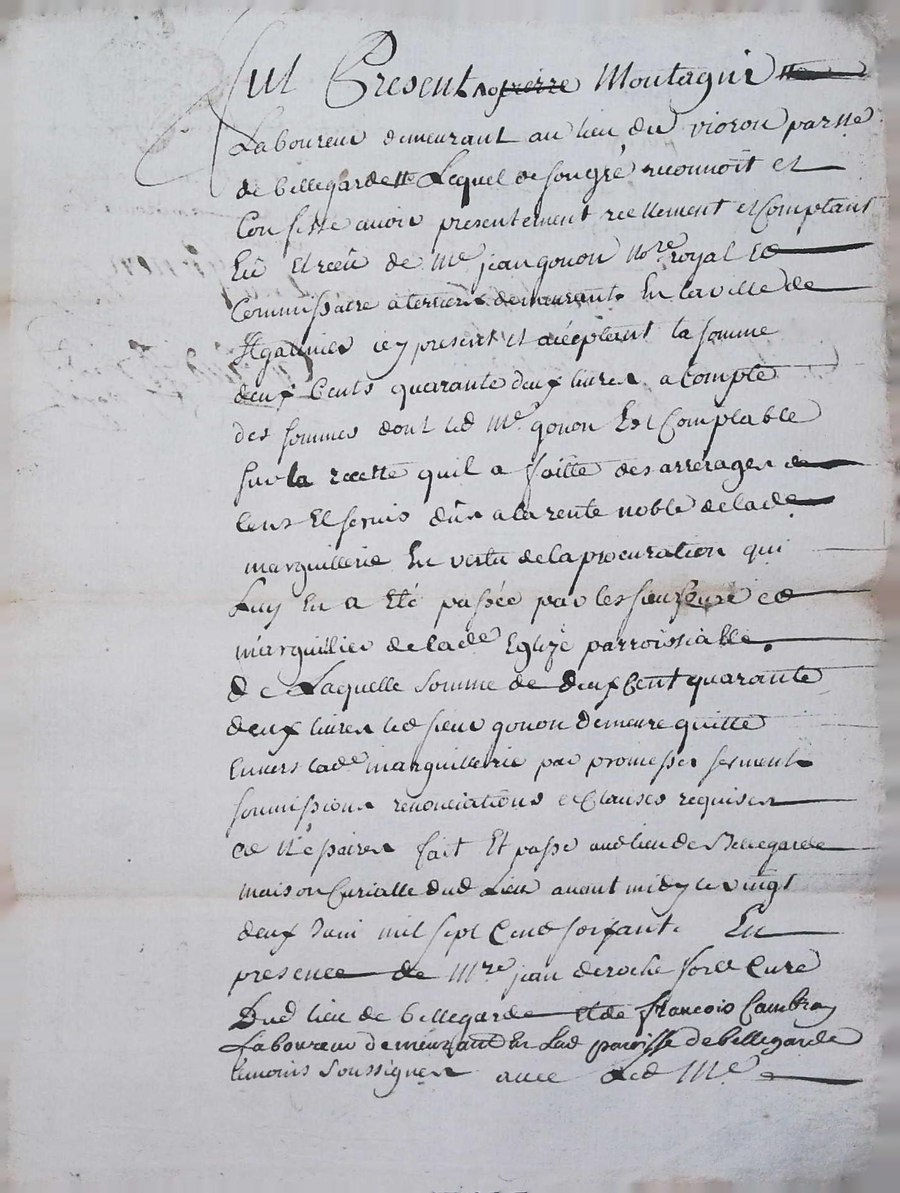 Fut Present pierre Montagni
Laboureur demeurant au lieu du vioron parsse
de bellegarde Lequel de son gré reconnoit et
Confesse avoir presentement reellement et Comptant
Eû Et receû de Me jean gonon Nore royal Et
Commissaire a terriers demeurant En la ville de
St galmier icy present et acceptant la somme
deux Cents quarante deux livres a compte
des sommes dont led Me gonon Est Comptable
sur la recette quil a faitte des arrerages de
Cens Et servis dûs a la rente noble de lade
marguillerie En vertu de la procuration qui
Luy En a Eté passée par les sieurs Curé et
marguillier de lade Eglize parroissialle
De Laquelle somme de deux Cent quarante
deux livres led sieur gonon demeure quitte
Envers lade marguillerie par promesses serment
soumissions renonciations et Clauses requises
fait Et passé aud lieu de Bellegarde
maison Curialle dud Lieu avant midy le vingt
deux Juin mil sept Cend soixante En
presence de Mre jean deroche Curé
Dud lieu de bellegarde et de françois Cambray
Laboureur demeurant En Lad paroisse de bellegarde
temoins soussignes avec Led Me